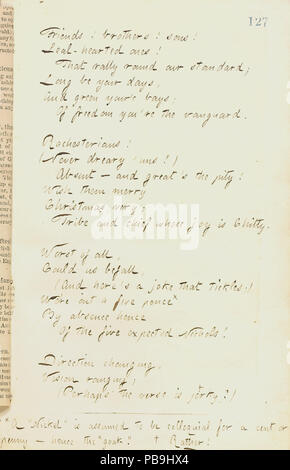 127
Friends! brothers! sons!
Leal-hearted ones!
That rally round our standard;
Long be your days,
And green your bays;
Of freedom you're the vanguard.
Rochesterians!
(Never dreary 'uns!)
Absent — and great's the pity!
Wish them merry
Christmas very;
Tribe and chief whose joy is Chitty.
Worst of all,
Could us befall,
(And here's a joke that tickles;)
Were out a five pence
By absence hence
Of the five expected Nichols!
Direction changing,
Vision ranging;
(Perhaps the verse is jorty?)
"Nickel" is assumed to be colloquial for a cent or
penny — hence the "goak"! † Rather!
alamy
alamy
Image ID: PB9HX4
www.alamy.com